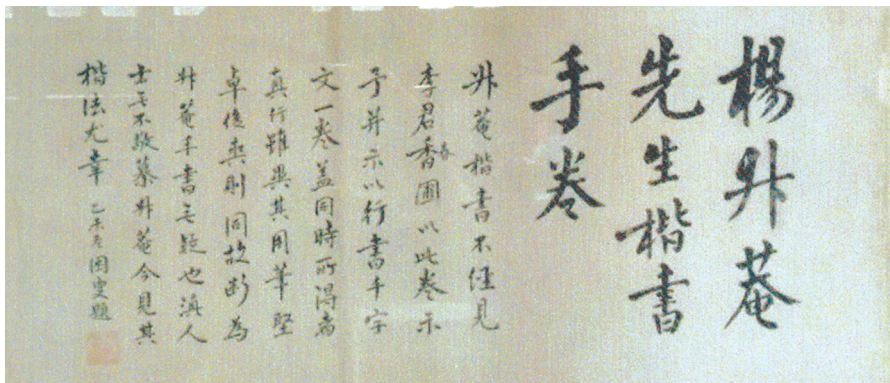 楊升菴
先生楷書
手卷
升菴楷書不經見
李君香圃以此卷示
予并示以行書千字
文一卷蓋同時所得者
真行雖異其用筆堅
卓俊爽則同故斷為
升菴手書無疑也滇人
士無不敬慕升菴今見其
楷法尤幸 己未冬困叟題